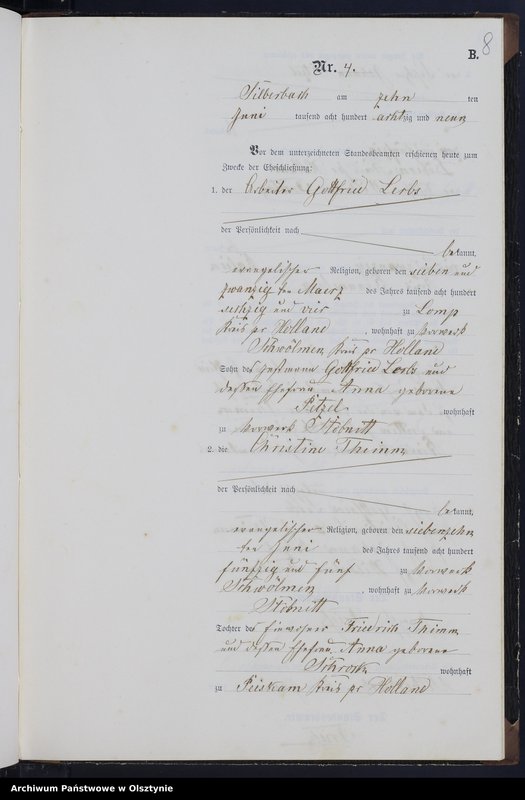 B.
8
Nr. 4.
Silberbach am zehn ten
Juni tausend acht hundert achtzig und neun
Vor dem unterzeichneten Standesbeamten erschienen heute zum
Zwecke der Eheschließung:
1. der Arbeiter Gottfried Lerbs
der Persönlichkeit nach
bekannt,
evangelischer Religion, geboren den sieben und
zwanzigsten Maerz des Jahres tausend acht hundert
sechzig und vier zu Lomp
Kreis pr Holland, wohnhaft zu Vorwerk
Schwölmen, Kreis pr Holland
Sohn des Gottfried Lerbs und
dessen Ehefrau Anna geborene
wohnhaft
zu Vorwerk Stobnitt
2. die Christine Thimm
der Persönlichkeit nach
bekannt,
evangelischer Religion, geboren den siebenzehn
ten Juni des Jahres tausend acht hundert
fünfzig und fünf zu Vorwerk
Schwölmen, wohnhaft zu Vorwerk
Stobnitt
Tochter des Einwohner Friedrich Thimm
und dessen Ehefrau Anna geborene
wohnhaft
zu Kreis pr Holland
Archiwum Państwowe w Olsztynie